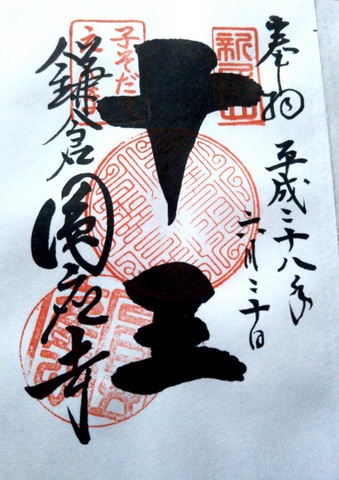 奉拝
平成二十八年
六月三十日
新居山
十王
子そだ
鎌倉圓應寺